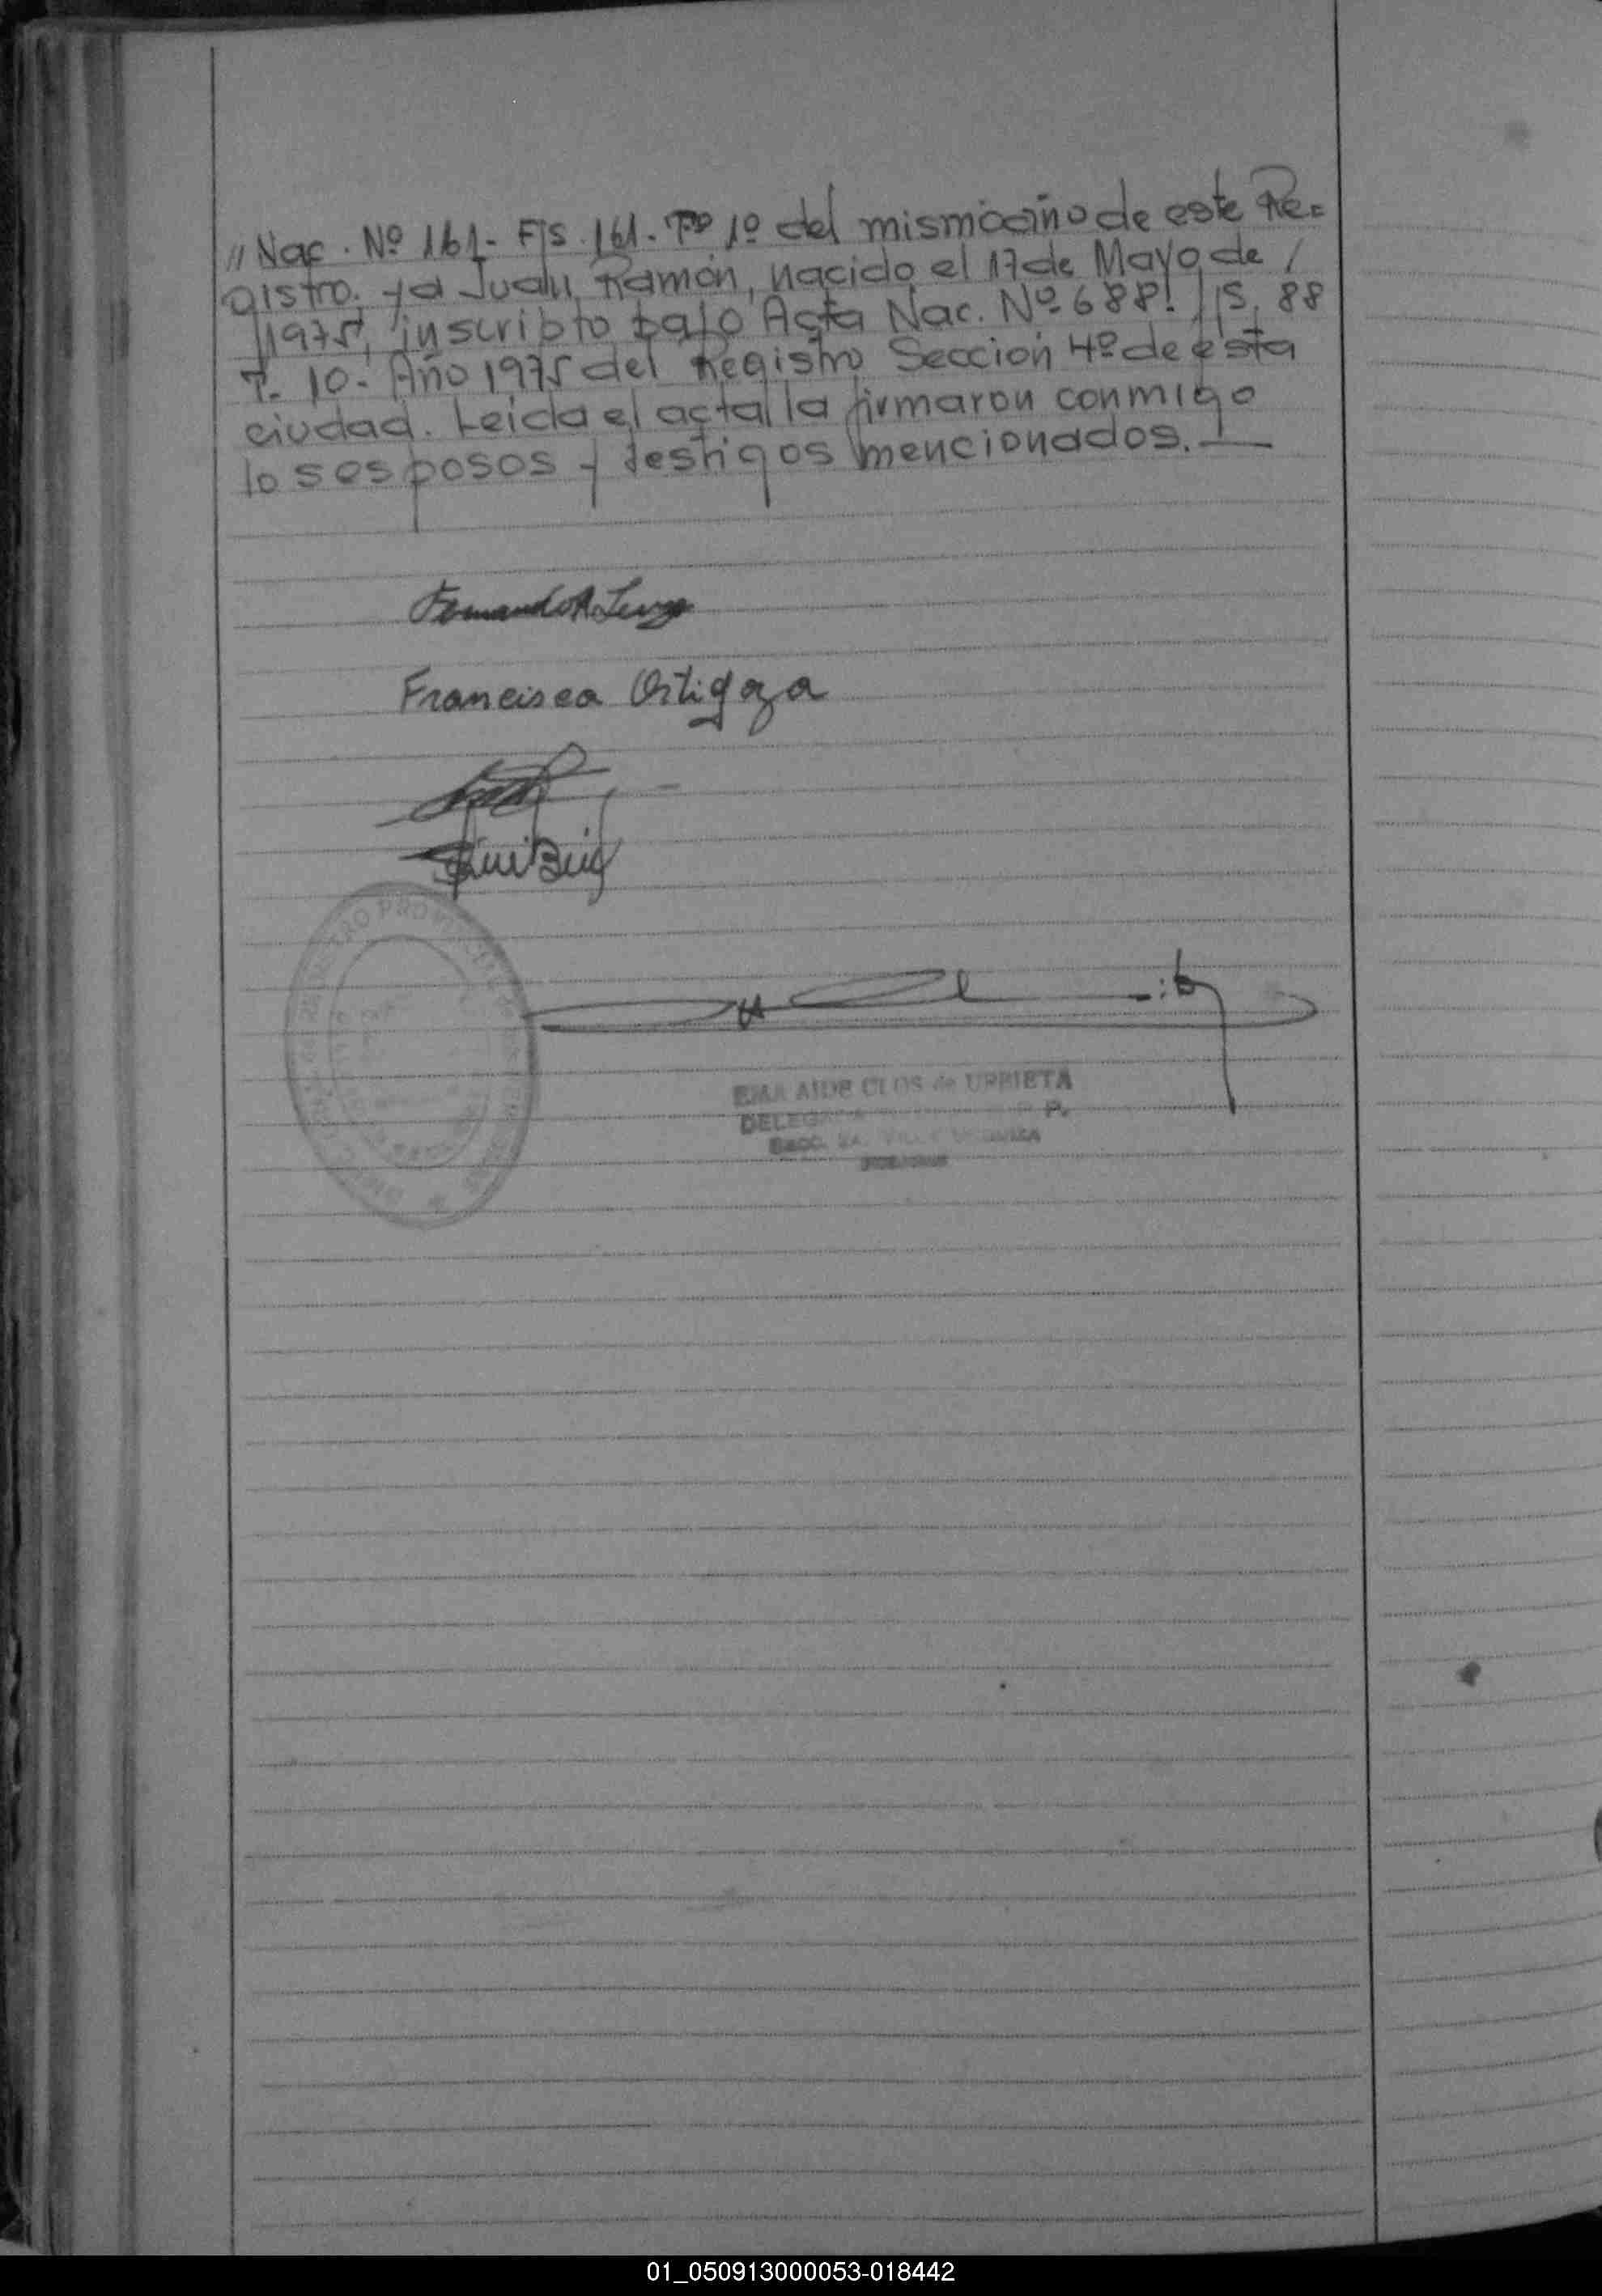 // Nac. Nº 161- Fjs. 161. Tº 1º del mismo año de este Re=
gistro. y a Juan Ramón, nacido el 17 de Mayo de /
1975, inscripto bajo Acta Nac. Nº 688. fjs. 88
T. 10- Año 1975 del Registro Sección 4º de esta
ciudad. Leida el acta, la firmaron conmigo
los esposos y testigos mencionados. —
Fernando A.
Francisca Ortigoza
REGISTRO PROVINCIAL
EMA AIDE CLOS de URRIETA
DELEGADA
P.
Secc.
01_050913000053-018442